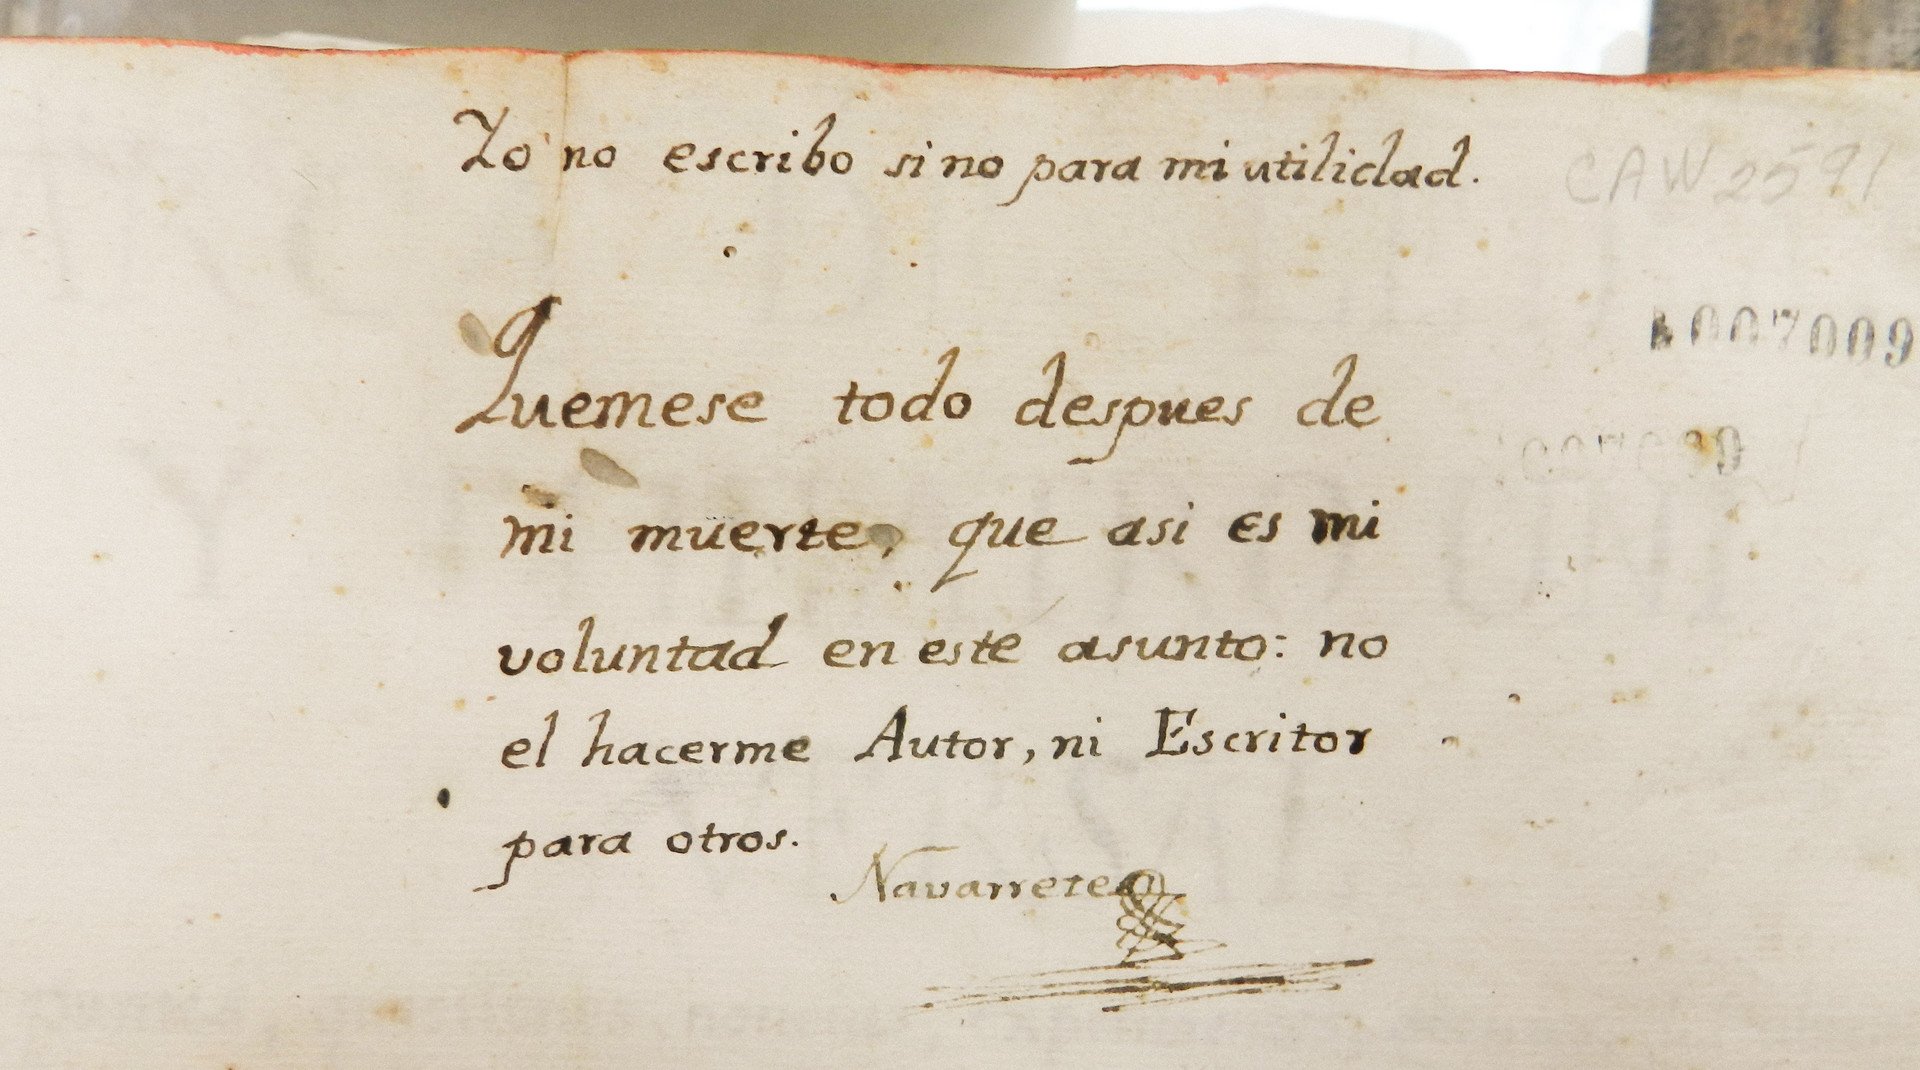 Yo no escribo sino para mi utilidad.
CAW 2591
1007009
Quemese todo despues de
mi muerte, que asi es mi
voluntad en este asunto: no
el hacerme Autor, ni Escritor
para otros.
Navarrete